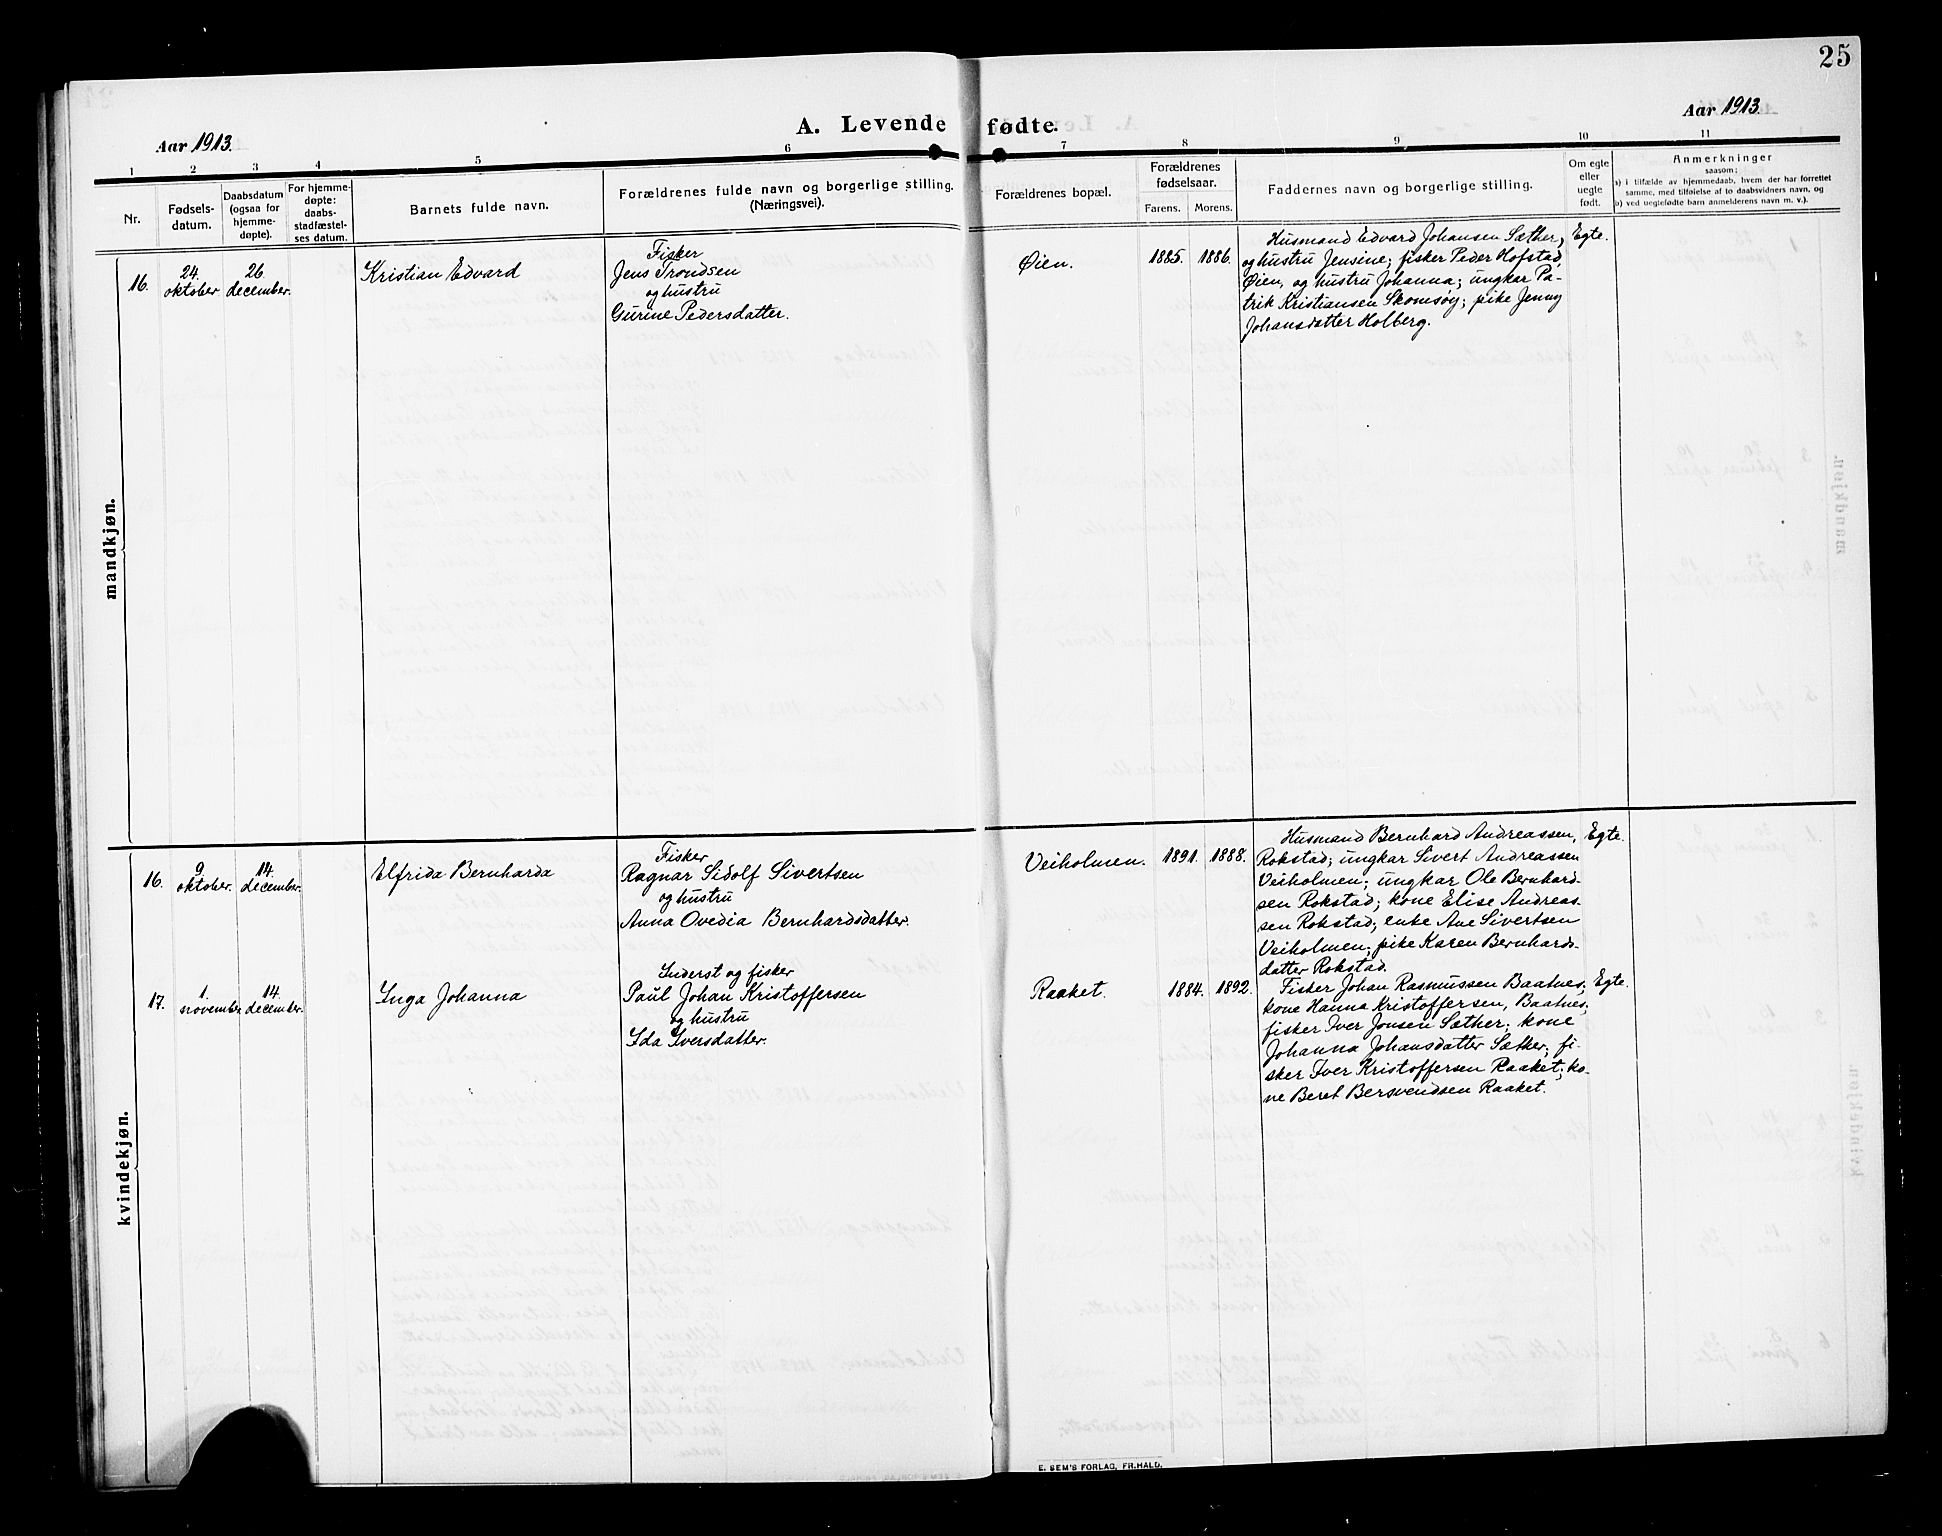 25
Aar 1913.
A. Levende fødte.
Aar 1913.
1 2 3 4 5 6 7 8 9 10 11
Nr.
Fødsels-
datum.
Daabsdatum
(ogsaa for
hjemme-
døpte).
For hjemme-
døpte:
daabs-
stadfæstel-
ses datum.
Barnets fulde navn.
Forældrenes fulde navn og borgerlige stilling.
(Næringsvei).
Forældrenes bopæl.
Forældrenes
fødselsaar.
Farens. Morens.
Faddernes navn og borgerlige stilling.
Om egte
eller
uegte
født.
Anmerkninger
saasom:
a) i tilfælde av hjemmedaab, hvem der har forrettet
samme, med tilføielse af to daabsvidners navn, og
b) ved uegtefødte barn anmelderens navn m. v.).
mandkjøn.
16.
24.
oktober
26.
december.
Kristian Edvard
Fisker
Jens Trondsen
og hustru
Gurine Pedersdatter.
Øien.
1885. 1886.
Husmand Edvard Johansen Sæther,
og hustru Jensine; fisker Peder Hofstad,
Øien, og hustru Johanna; ungkar Pa-
trik Kristiansen Skomsøy; pike Jenny
Johansdatter Holberg.
Egte.
kvindekjøn.
16.
9.
oktober.
14.
december.
Elfrida Bernharda
Fisker
Ragnar Sidolf Sivertsen
og hustru
Anna Ovedia Bernhardsdatter.
Veiholmen.
1891. 1888.
Husmand Bernhard Andreassen,
Rokstad; ungkar Sivert Andreassen
Veiholmen; ungkar Ole Bernhard-
sen Rokstad; kone Elise Andreas-
sen Rokstad; enke Ane Sivertsen
Veiholmen; pike Karen Bernhards-
datter Rokstad.
Egte.
17.
1.
november
14.
december.
Inga Johanna
Inderst og fisker
Paul Johan Kristoffersen
og hustru
Ida Iversdatter.
Raaket.
1884. 1892.
Fisker Johan Rasmussen Baatnes;
kone Hanna Kristoffersen, Baatnes;
fisker Iver Jonsen Sæther; kone
Johanna Johansdatter Sæther; fi-
sker Iver Kristoffersen Raaket; ko-
ne Beret Bersvendsen Raaket.
Egte.
E. SEM'S FORLAG, FR.HALD.